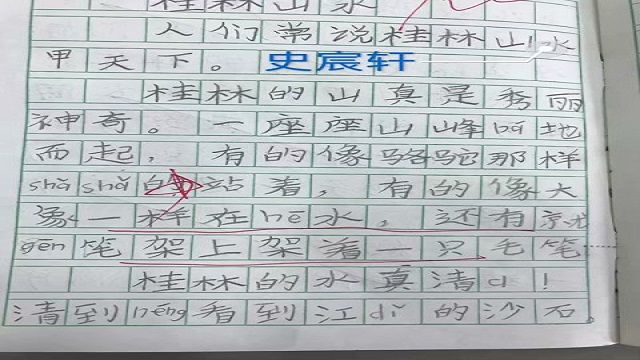 桂林山水
人们常说桂林山水
甲天下。
史宸轩
桂林的山真是秀丽
神奇。一座座山峰bá地
而起，有的像骆驼那样
shǎ shǎ的站着，有的像大
象一样在hē水，还有
gēn笔架上架着一只毛笔
桂林的水真清a！
清到néng看到江dǐ的沙石